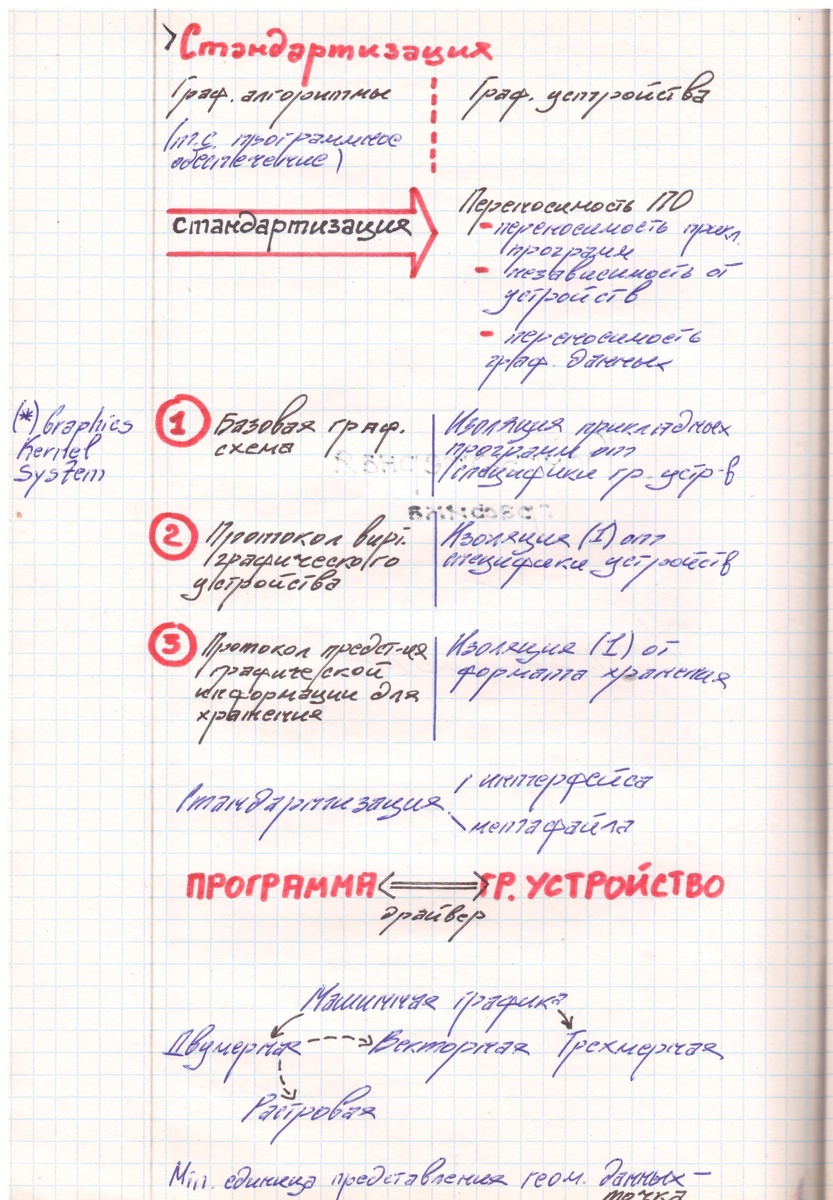 Стандартизация
Граф. алгоритмы
Граф. устройства
(т.е. программное
обеспечение)
стандартизация
Переносимость ПО
- переносимость прикл.
программ
- независимость от
устройств
- переносимость
граф. данных
(*) Graphics
Kernel
System
1 Базовая граф.
схема
Изоляция прикладных
программ от
специфики гр. устр-в
2 Протокол вирт.
графического
устройства
Изоляция (1) от
специфики устройств
3 Протокол предст-ия
графической
информации для
хранения
Изоляция (1) от
формата хранения
Стандартизация
интерфейса
метафайла
ПРОГРАММА
ГР. УСТРОЙСТВО
драйвер
Машинная графика
Двумерная
Векторная
Трехмерная
Растровая
Min. единица представления геом. данных -
точка